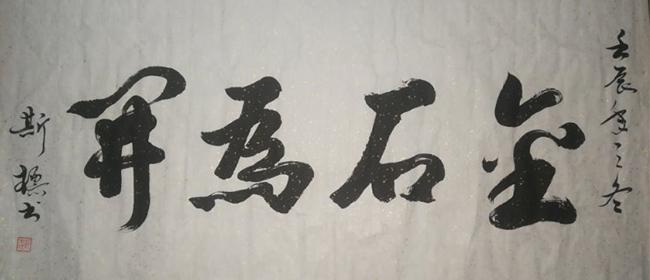 壬辰年之冬
金石為開
斯 书